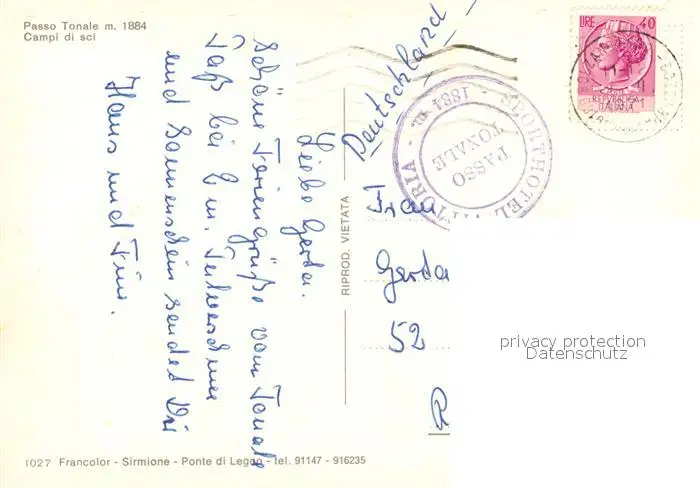 Passo Tonale m. 1884
Campi di sci
Liebe Gerda.
Schöne Feriengrüße vom Tonale
Paß bei 2 m. Pulverschnee
und Sonnenschein sendet Dir
Hans und
RIPROD. VIETATA
Deutschland
Frau
Gerda
52
SPORTHOTEL VITTORIA - m. 1884 -
PASSO
TONALE
LIRE 40
REPVBBLICA
ITALIANA
privacy protection
Datenschutz
1027 Francolor - Sirmione - Ponte di Legno - tel. 91147 - 916235